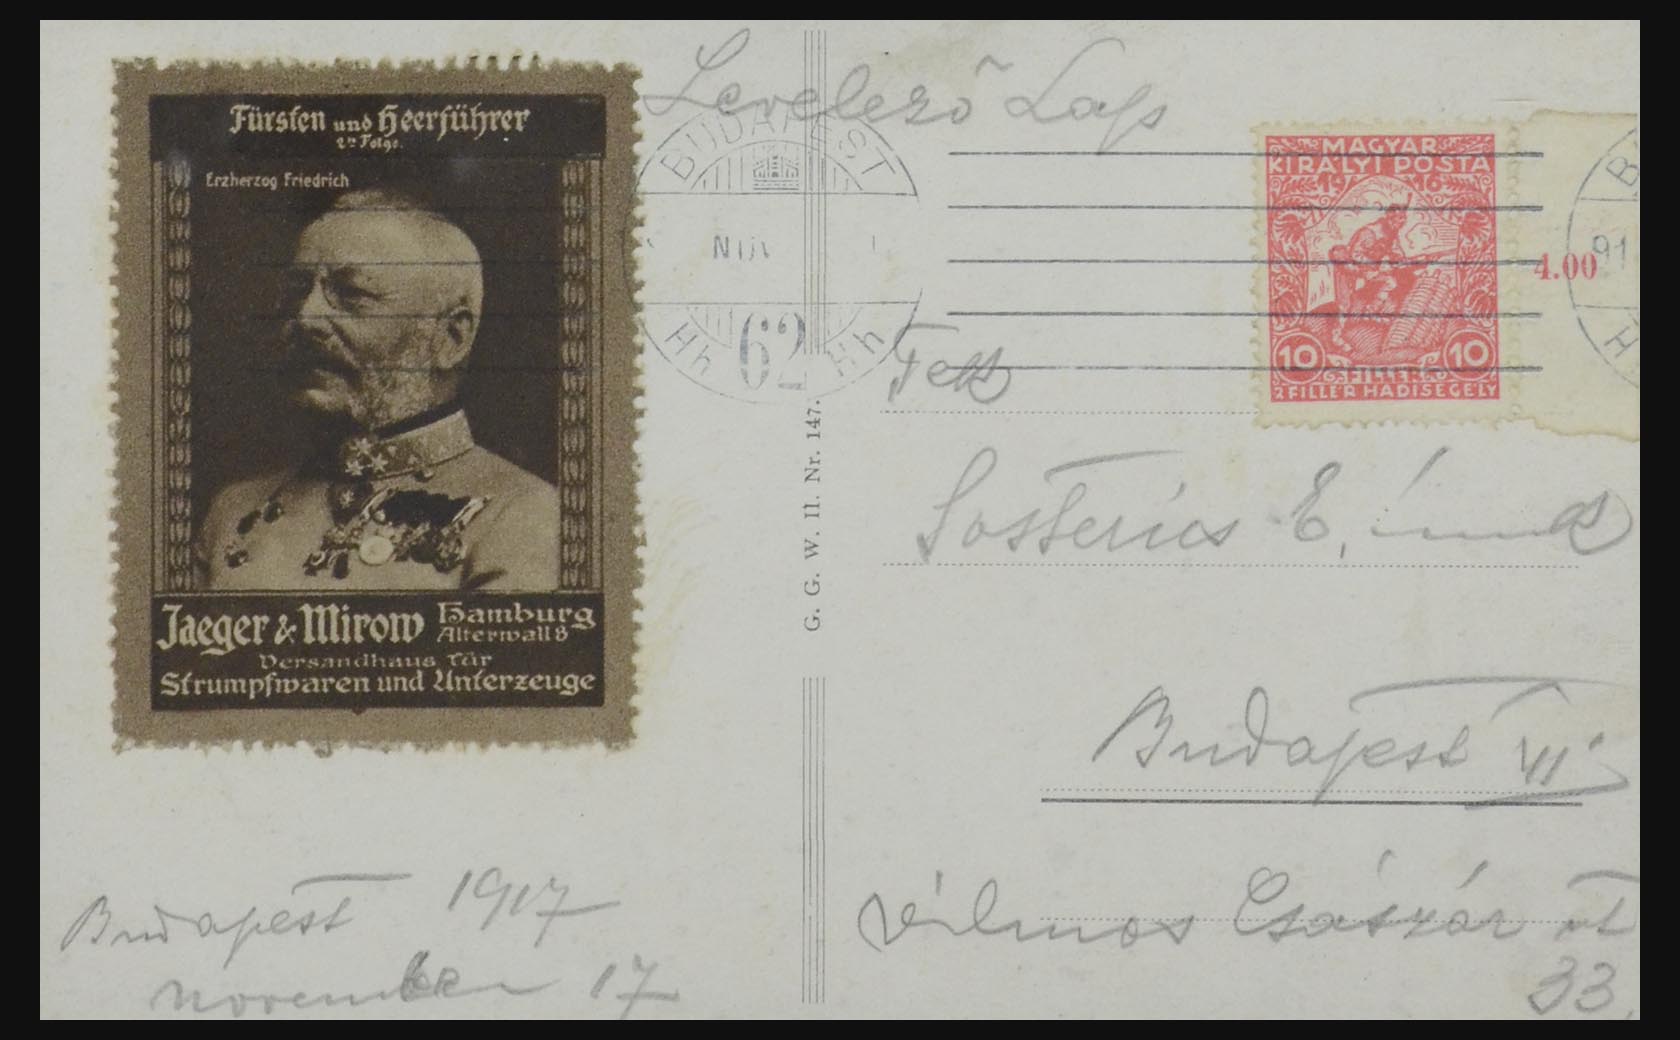 Fürsten und Heerführer
2te Folge.
Erzherzog Friedrich
Jaeger & Mirow Hamburg
Alterwall 8
Versandhaus für
Strumpfwaren und Unterzeuge
Levelező Lap
BUDAPEST
NOV
62
Hh Hh
MAGYAR
KIRÁLYI POSTA
1916
4.00
91
10 10
FILLÉR
2 FILLÉR HADISEGÉLY
G. G. W. II. Nr. 147.
Budapest VI
Vilmos Császár út
33.
Budapest 1917
november 17